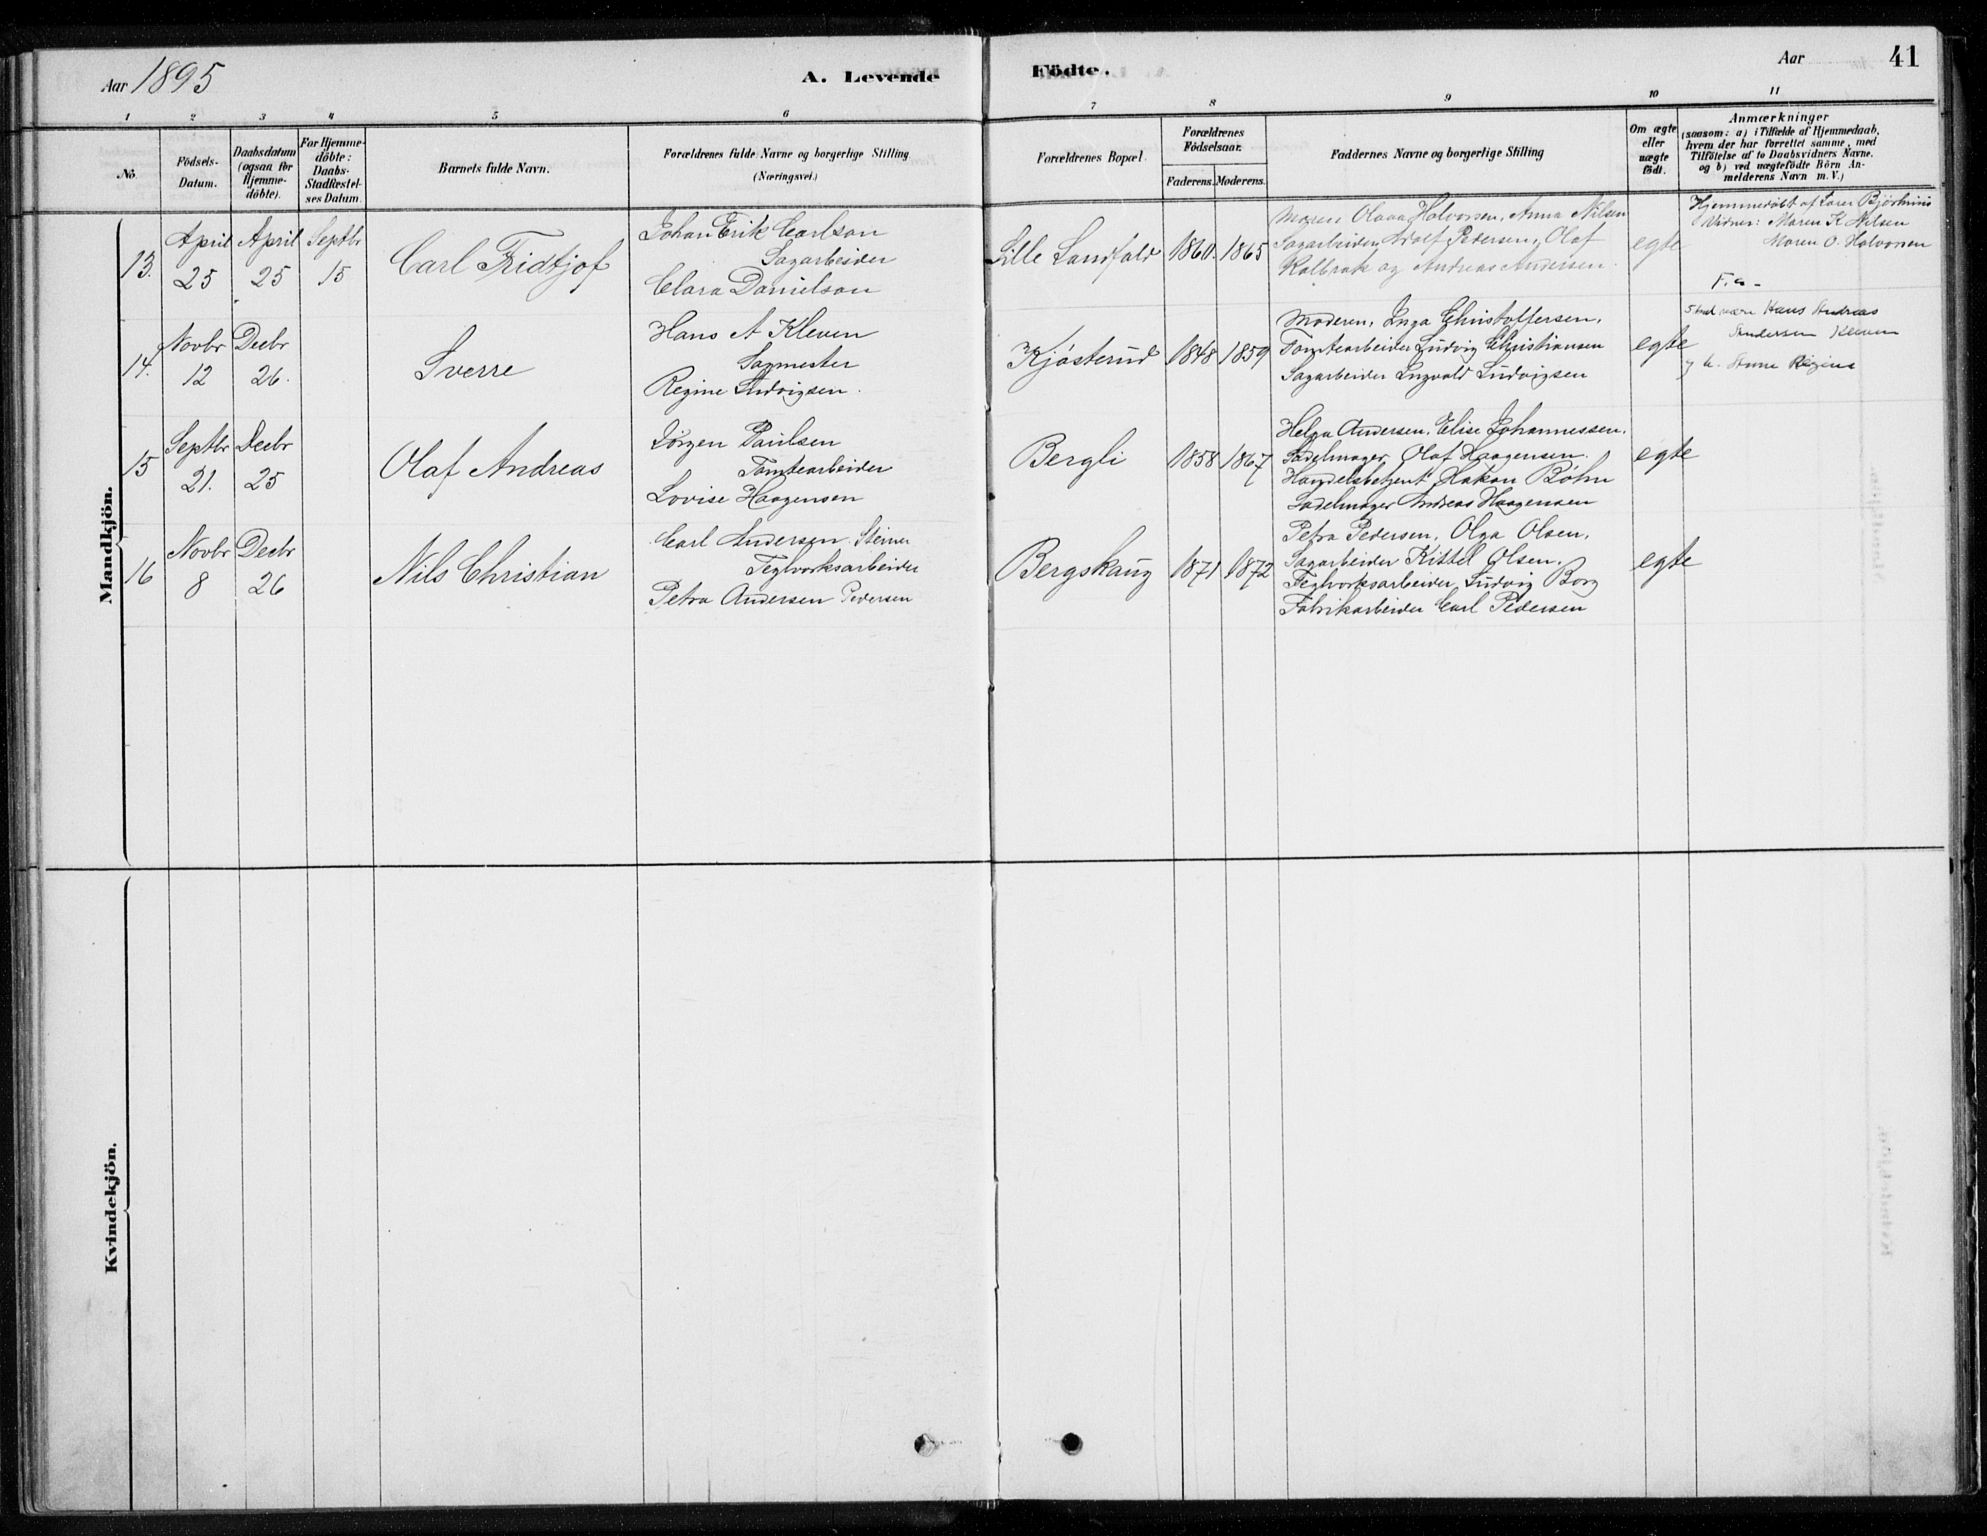 Aar 1895
A. Levende
Födte.
Aar
41
1 2 3 4 5 6 7 8 9 10 11
No.
Födsels-
Datum.
Daabsdatum
(ogsaa for
Hjemme-
döbte).
For Hjemme-
döbte:
Daabs-
Stadfæstel-
ses Datum.
Barnets fulde Navn.
Forældrenes fulde Navne og borgerlige Stilling
(Næringsvei.)
Forældrenes Bopæl.
Forældrenes
Födselsaar.
Faderens. Moderens.
Faddernes Navne og borgerlige Stilling
Om ægte
eller
uægte
födt.
Anmærkninger
(saasom: a) i Tilfælde af Hjemmedaab,
hvem der har forrettet samme, med
Tilföielse af to Daabsvidners Navne.
og b) ved uægtefödte Börn An-
melderens Navn m. V.)
Mandkjön.
13.
April
25
April
25
Septbr
15
Carl Fridtjof
Johan Erik Carlson
Sagarbeider
Clara Danielson
Lille Landfald
1860.
1865
Maren Olava Halvorsen, Anna Nilsen
Sagarbeider Adolf Pedersen, Olaf
Kolbrak og Andreas Andersen.
egte
Hjemmedöbt af Lærer
Vidner: Maren K. Nilsen
Maren O. Halvorsen
14.
Novbr
12
Decbr
26.
Sverre
Hans A Kleven
Sagmester
Regine Ludvigsen.
Kjøsterud
1848
1859
Moderen, Inga Christoffersen,
Tomtearbeider Ludvig Christiansen
Sagarbeider Ingvald Ludvigsen
egte
Skal være Hans Andreas
Andersen Kleven
Regine
15
Septbr
21.
Decbr
25
Olaf Andreas
Jörgen Paulsen
Tomtearbeider
Lovise Haagensen
Bergli
1858
1867
Helga Andersen, Elise Johannessen,
Sadelmager Olaf Haagensen.
Handelsbetjent Hakon Bøhn
Sadelmager Andreas Haagensen
egte
16
Novbr
8
Decbr
26
Nils Christian
Carl Andersen Steiner
Teglværksarbeider
Petra Andersen Pedersen
Bergskaug
1871
1872
Petra Pedersen, Olga Olsen,
Sagarbeider Kittel Olsen,
Teglværksarbeider Ludvig Borg
Fabrikarbeider Carl Pedersen
egte
Kvindekjön.